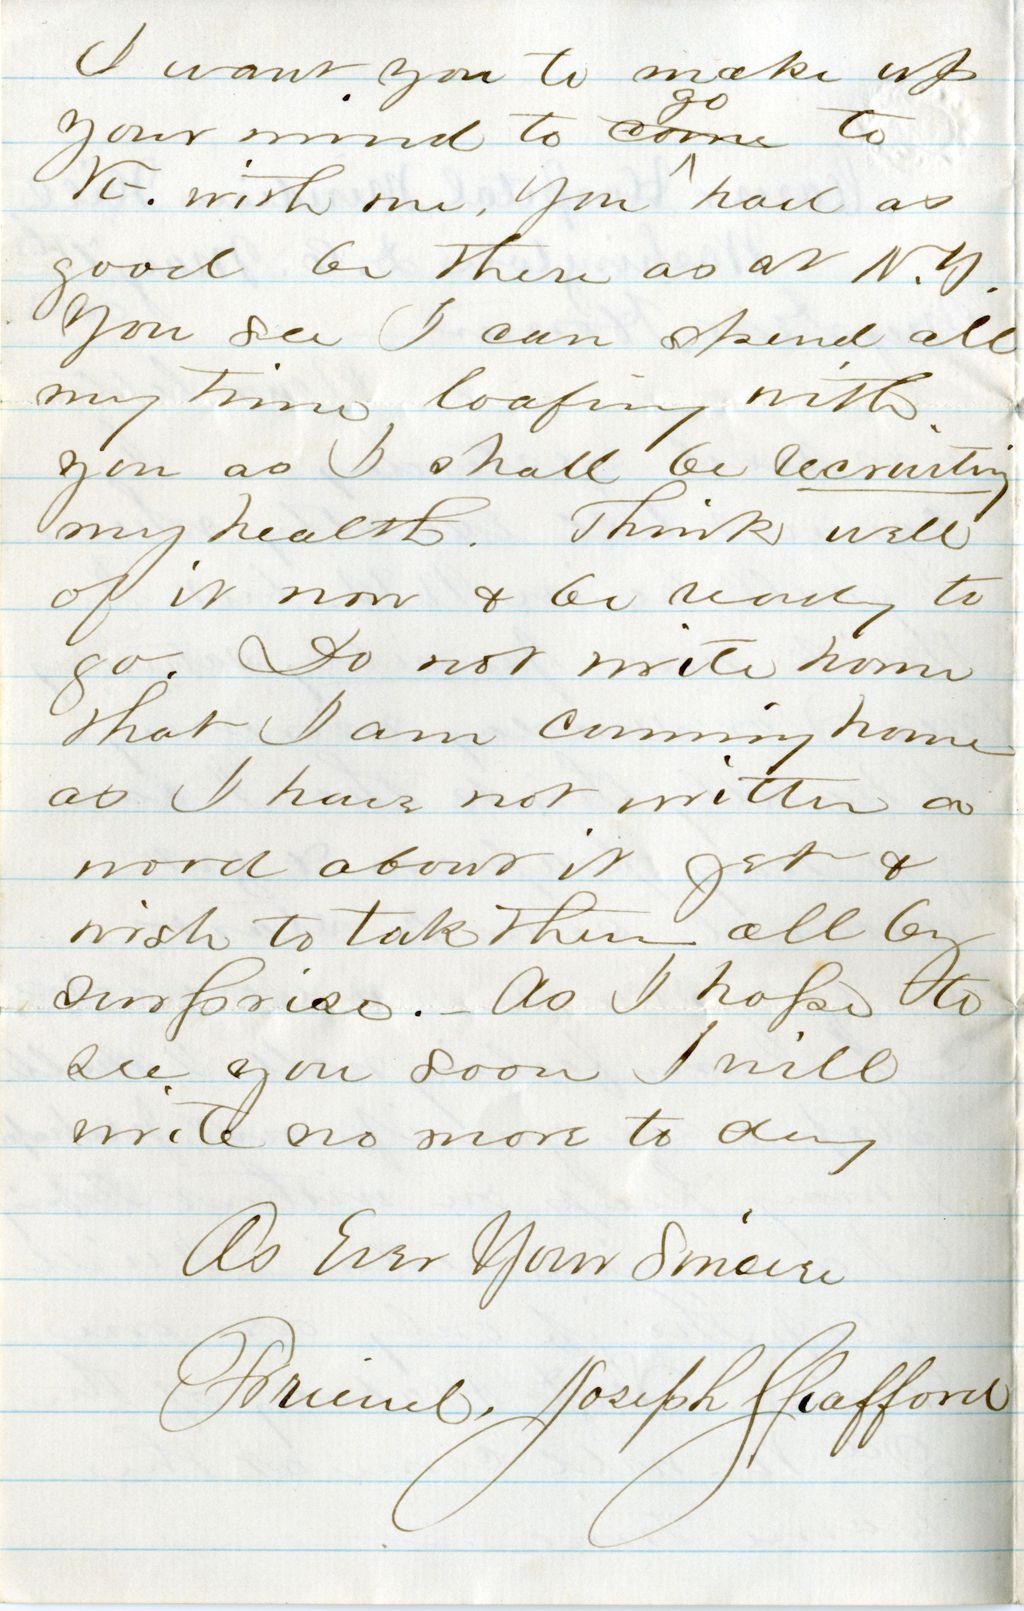 I want you to make up
your mind to come go to
Vt. with me, You had as
good be there as at N.Y.
You see I can spend all
my time loafing with
you as I shall be recruiting
my health. Think well
of it now & be ready to
go. Do not write home
that I am coming home
as I have not written a
word about it yet &
wish to take them all by
surprise. - As I hope to
see you soon I will
write no more to day
As Ever Your Sincere
Friend, Joseph Spafford